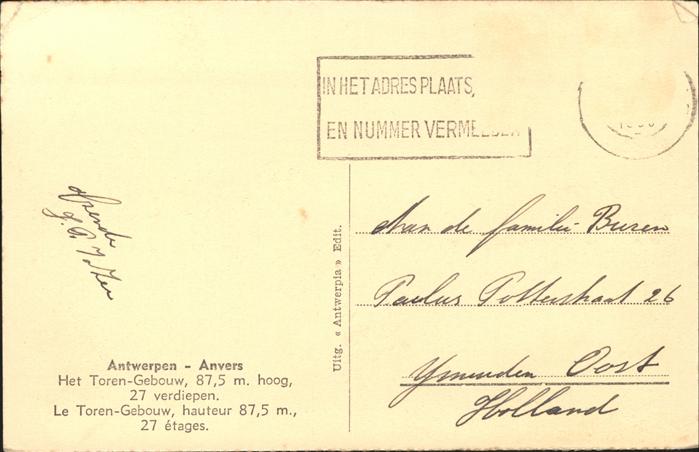 IN HET ADRES PLAATS,
EN NUMMER VERMELDEN
Afzender
Aan de familie Buren
Paulus Potterstraat 26
Ymuiden Oost
Holland
Uitg. « Antwerpia » Edit.
Antwerpen - Anvers
Het Toren-Gebouw, 87,5 m. hoog,
27 verdiepen.
Le Toren-Gebouw, hauteur 87,5 m.,
27 étages.